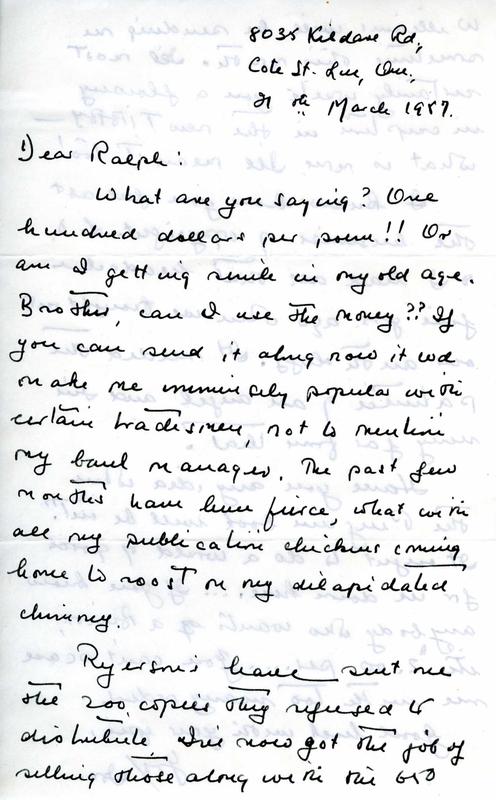 8035 Kildare Rd,
Cote St. Luc, Que,
21 th March 1957.
Dear Ralph:
What are you saying? One
hundred dollars per poem!! Or
am I getting senile in my old age.
Brother, can I use the money?? If
you can send it along now it wd
make me immensely popular with
certain tradesmen, not to mention
my bank manager. The past few
months have been fierce, what with
all my publication chickens coming
home to roost on my dilapidated
chimney.
Ryerson's have sent me
the 200 copies they refused to
distribute. I've now got the job of
selling those along with the 650